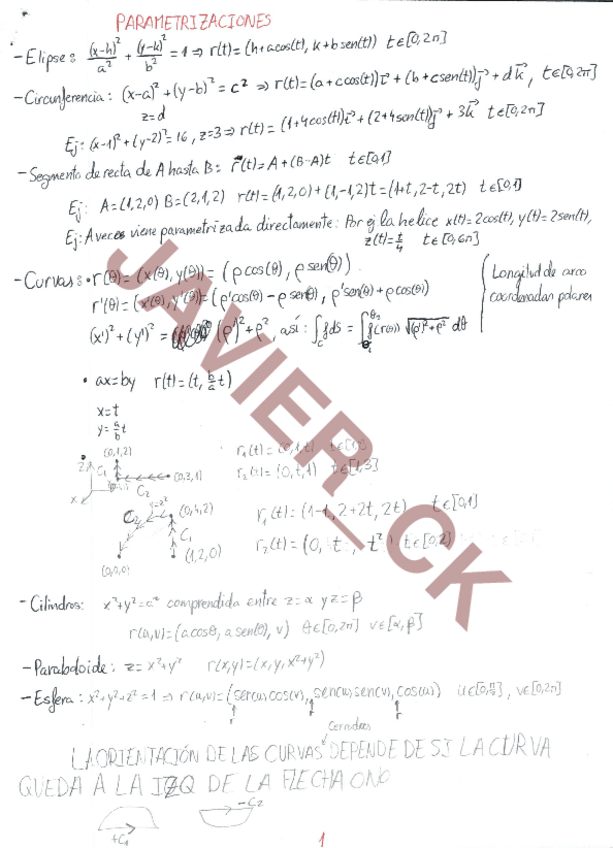 PARAMETRIZACIONES
- Elipse: (x-h)²/a² + (y-k)²/b² = 1 ⇒ r(t) = (h+acos(t), k+bsen(t)) t∈[0,2π]
- Circunferencia: (x-a)²+(y-b)² = c² ⇒ r(t) = (a+ccos(t))i + (b+csen(t))j + dk, t∈[0,2π]
z=d
Ej: (x-1)²+(y-2)²=16, z=3 ⇒ r(t) = (1+4cos(t))i + (2+4sen(t))j + 3k t∈[0,2π]
- Segmento de recta de A hasta B: r(t) = A+(B-A)t t∈[0,1]
Ej: A=(1,2,0) B=(2,1,2) r(t)=(1,2,0)+(1,-1,2)t=(1+t,2-t,2t) t∈[0,1]
Ej: A veces viene parametrizada directamente: Por ej la helice x(t)=2cos(t), y(t)=2sen(t),
z(t)=t/4 t∈[0,6π]
- Curvas: • r(θ)=(x(θ),y(θ))=(ρcos(θ), ρsen(θ))
r'(θ)=(x'(θ),y'(θ))=(ρ'cos(θ)-ρsen(θ), ρ'sen(θ)+ρcos(θ))
(x')²+(y')² = (ρ')²+ρ², así: ∫f ds = ∫f(r(θ)) √(ρ')²+ρ² dθ
Longitud de arco
coordenadas polares
• ax=by r(t)=(t, b/a t)
x=t
y=a/b t
(0,1,2)
z C₁ (0,3,1)
x C₂
r₁(t)=(0,1,t)
r₂(t)=(0,t,1) t∈[1,3]
y=z² (0,4,2)
C₂ C₁
(0,0,0) (1,2,0)
r₁(t)=(1-t,2+2t,2t) t∈[0,1]
r₂(t)=(0, t, t²) t∈[0,2]
- Cilindros: x²+y²=a² comprendida entre z=α y z=β
r(u,v)=(acosθ, asen(θ), v) θ∈[0,2π] v∈[α,β]
- Paraboloide: z=x²+y² r(x,y)=(x,y,x²+y²)
- Esfera: x²+y²+z²=1 ⇒ r(u,v)=(sen(u)cos(v), sen(u)sen(v), cos(u)) v∈[0,2π]
Cerradas
LA ORIENTACIÓN DE LAS CURVAS DEPENDE DE SI LA CURVA
QUEDA A LA IZQ DE LA FLECHA O NO
+C₁ -C₂
1
JAVIER_CK